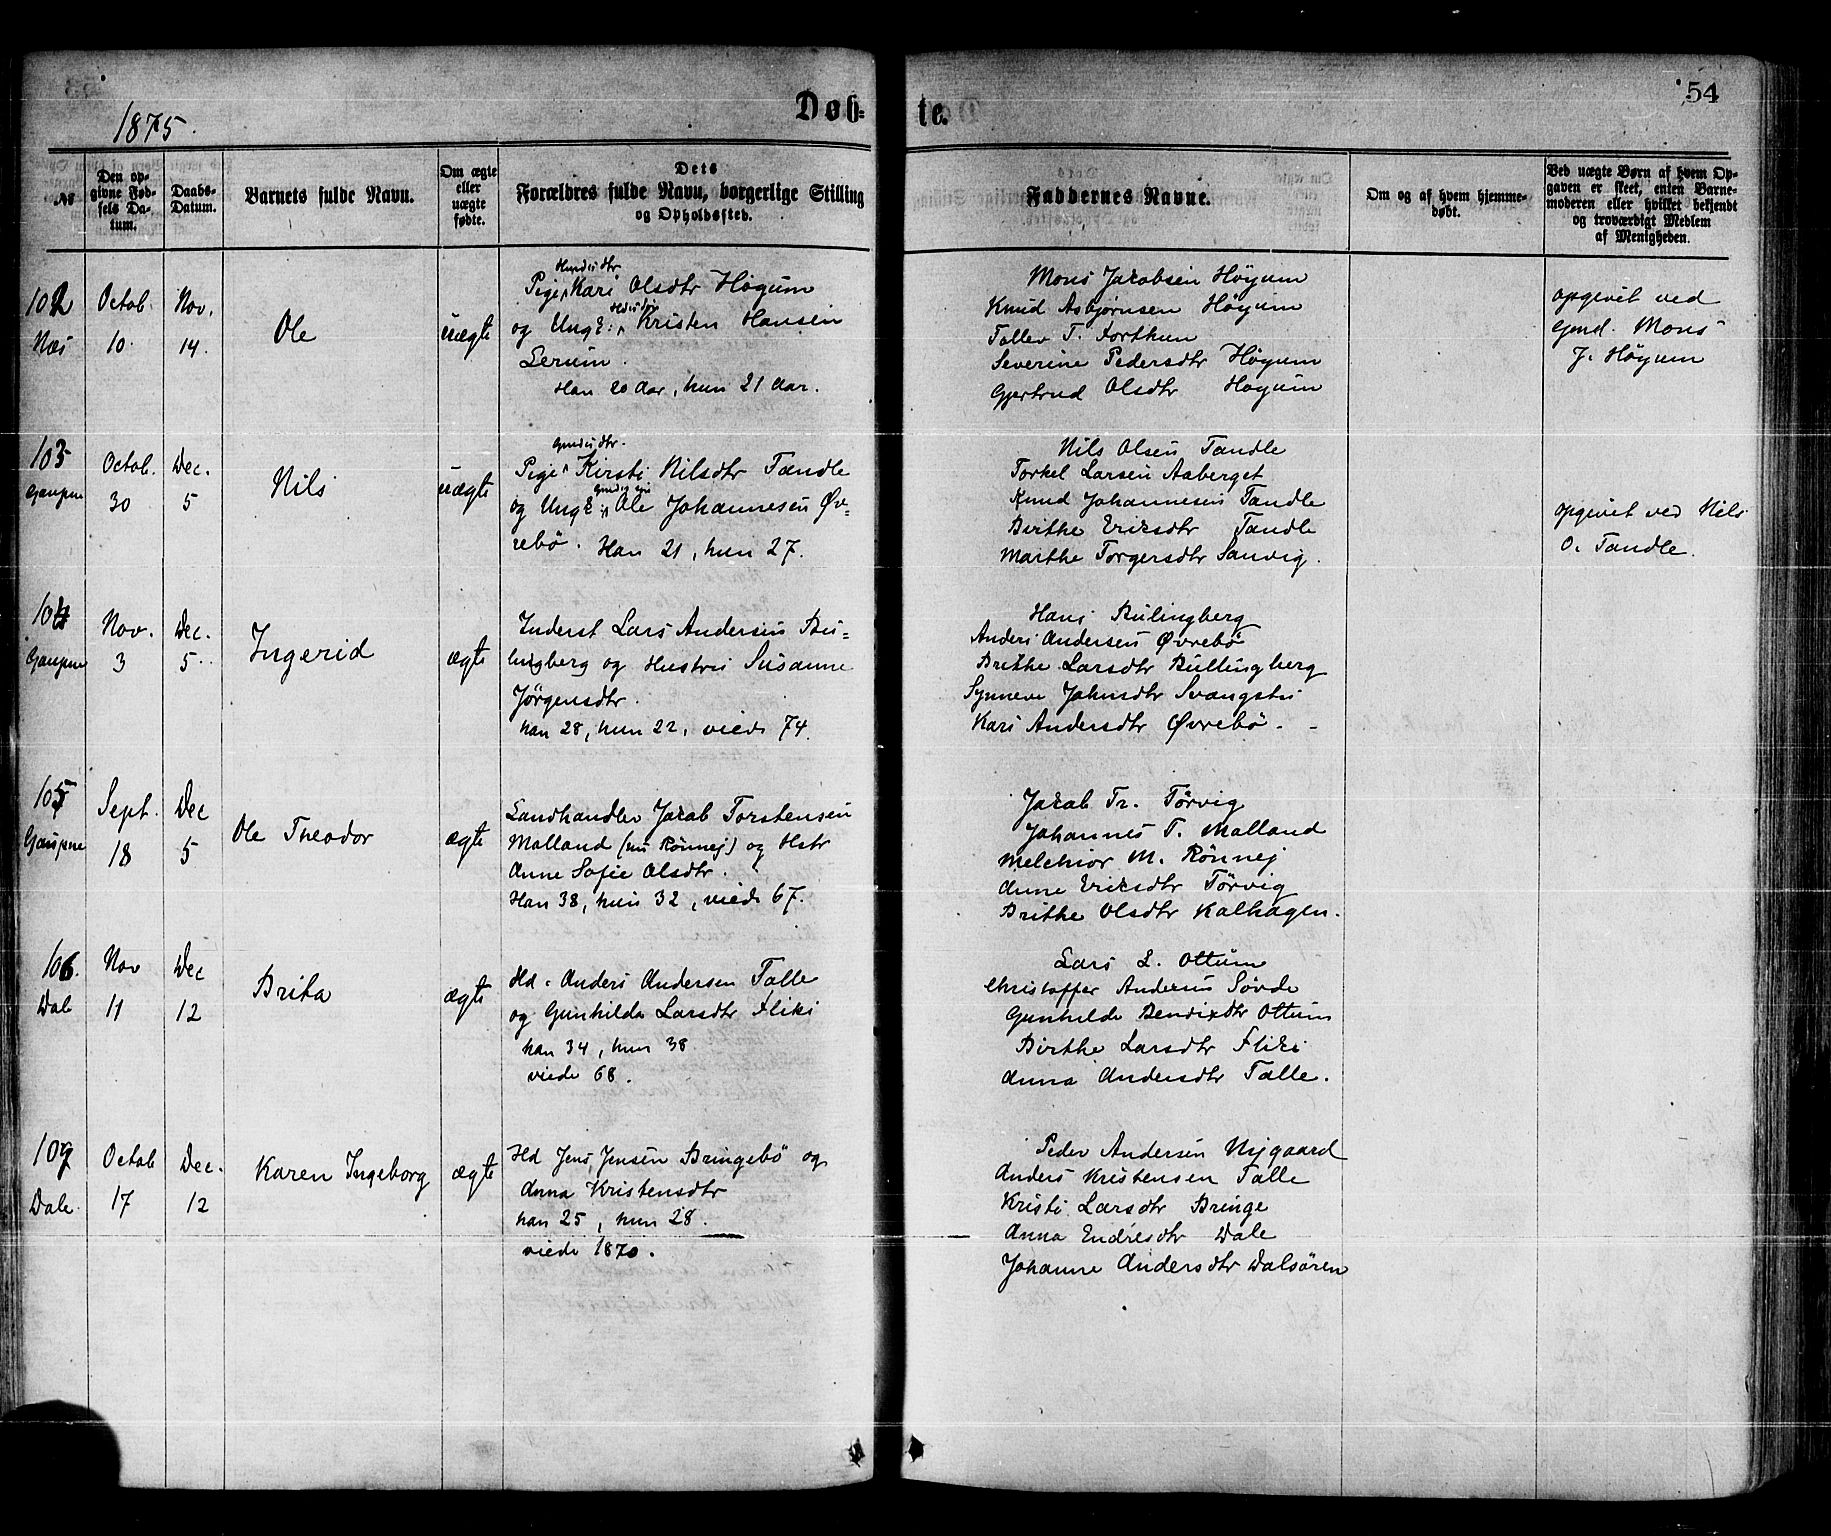 1875.
Døb-
te.
54
No
Den op-
givne Fød-
sels Da-
tum.
Daabs-
Datum.
Barnets fulde Navn.
Om ægte
eller
uægte
fødte.
Dets
Forældres fulde Navn, borgerlige Stilling
og Opholdssted.
Faddernes Navne.
Om og af hvem hjemme-
døbt.
Ved uægte Børn af hvem Op-
gaven er skeet, enten Barne-
moderen eller hvilket bekjendt
og troværdigt Medlem
af Menigheden.
102
Næs
Octob.
10.
Nov.
14.
Ole
uægte
Pige Kari Olsdtr Høgum
og Ungk: Kristen Hansen
Lerum.
Han 20 Aar, hun 21 Aar.
Mons Jakobsen Høyum
Knud Asbjørnsen Høyum
Tollev T. Forthun
Severine Pedersdtr Høyum
Gjertrud Olsdtr Høyum
opgivet ved
Gmd. Mons
J. Høyum
103
Gaupne
Octob.
30
Dec.
5
Nils
uægte
Gmdsdtr.
Pige Kirsti Nilsdtr Tandle
og Ungk: Ole Johannesen Øv-
rebø. Han 21, hun 27.
Nils Olsen Tandle
Torkel Larsen Aaberget
Knud Johannesen Tandle
Birthe Eriksdtr Tandle
Marthe Torgersdtr Sanvig.
opgivet ved Nils
O. Tandle.
104
Gaupne
Nov.
3
Dec.
5
Ingerid
ægte
Inderst Lars Andersen Bu-
lingberg og Hustru Susanne
Jørgensdtr.
han 28, hun 22, viede 74.
Hans Bulingberg
Anders Andersen Øvrebø
Brithe Larsdtr Bullingberg
Synneve Johnsdtr
Kari Andersdtr Øvrebø.
105
Gaupne
Sept.
18
Dec
5
Ole Theodor
ægte
Landhandler Jakob Torstensen
Molland (nu Rønnej) og Hstr
Anne Sofie Olsdtr.
Han 38, hun 32, viede 67.
Jakob Tr. Tørvig
Johannes T. Molland
Melchior M. Rønnej
Anne Eriksdtr Tørvig
Brithe Olsdtr Kalhagen.
106.
Dale
Nov
11
Dec
12
Brita
ægte
Hd. Anders Andersen Talle
og Gunhilde Larsdtr Fliki
han 34, hun 38.
viede 68.
Lars L. Ottum
Christoffer Andersen Søvde
Gunhilde Bendixdtr Ottum
Birthe Larsdtr Fliki
Anna Andersdtr Talle.
107
Dale.
Octob
17
Dec.
12
Karen Ingeborg
ægte
Hd Jens Jensen Bringebø og
Anna Kristensdtr
han 25, hun 28.
viede 1870.
Peder Andersen Nygaard
Anders Kristensen Talle
Kristi Larsdtr Bringe
Anna Endresdtr Dale
Johanne Andersdtr Dalsøren